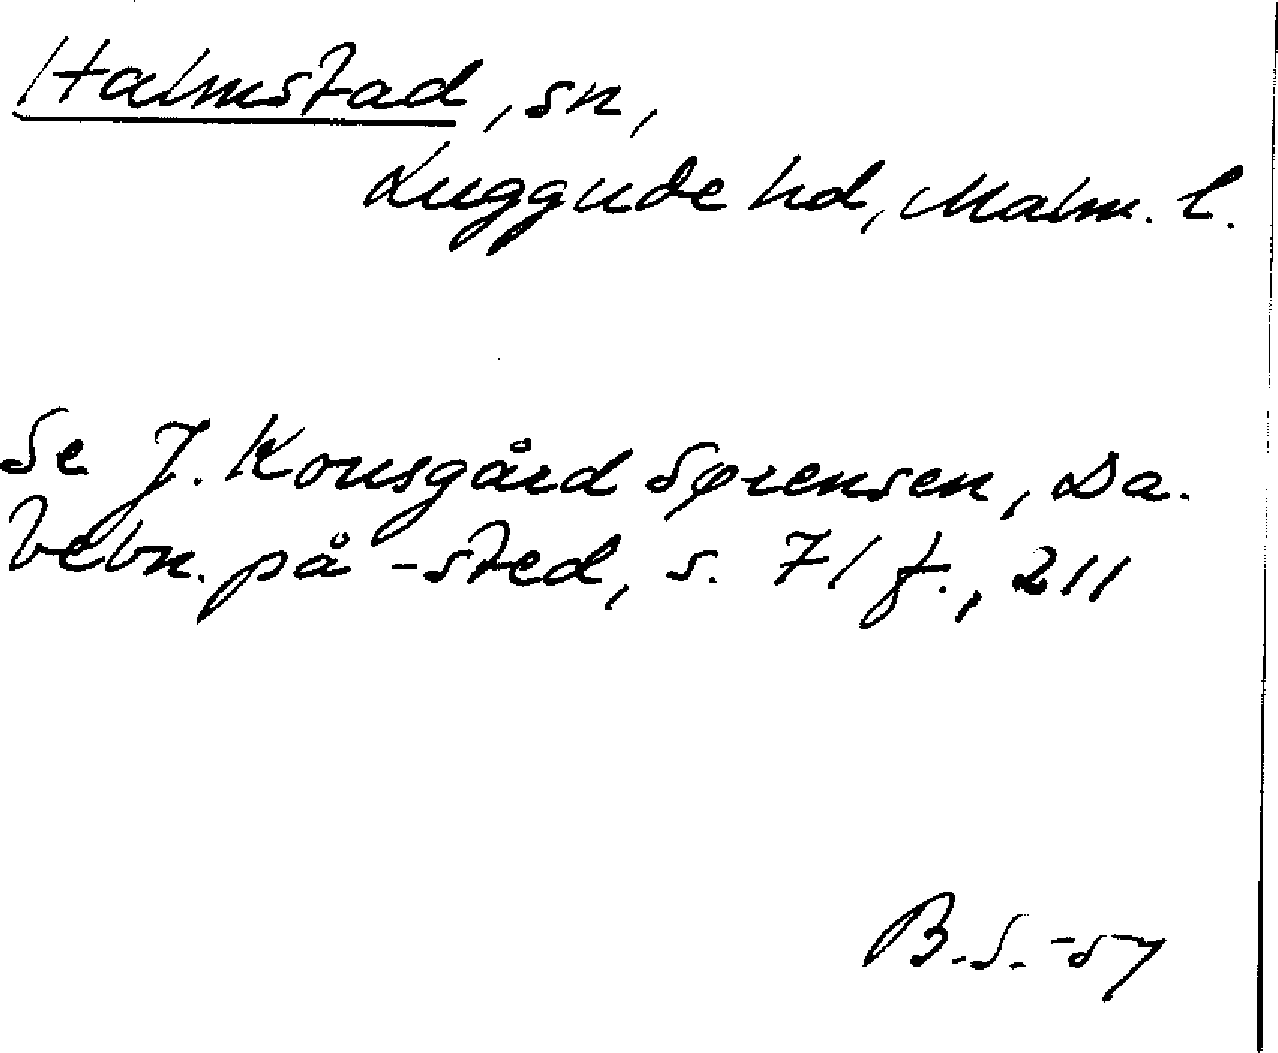 Halmstad, sn,
Luggude hd, Malm. l.
Se J. Kousgård Sørensen, Da.
bebn. på -sted, s. 71 f., 211
B.S. -57